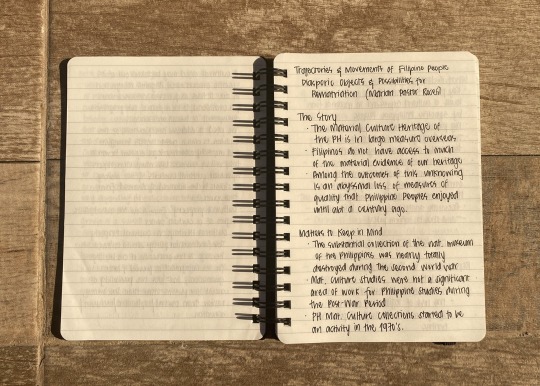 Trajectories & Movements of Filipino People
Diasporic Objects & Possibilities for
Rematriation (Marian Pastor Roces)
The Story
· The Material Culture Heritage of
the PH is in large measure overseas
· Filipinos do not have access to much
of the material evidence of our heritage
· Among the outcomes of this unknowing
is an abysmal loss of measures of
quality that Philippine Peoples enjoyed
until abt a century ago.
Matters to Keep in Mind
· The substantial collection of the nat. museum
of the Philippines was nearly totally
destroyed during the second world war
· Mat. culture studies were not a significant
area of work for Philippine studies during
the Post-War Period
· PH Mat. Culture collections started to be
an activity in the 1970's.